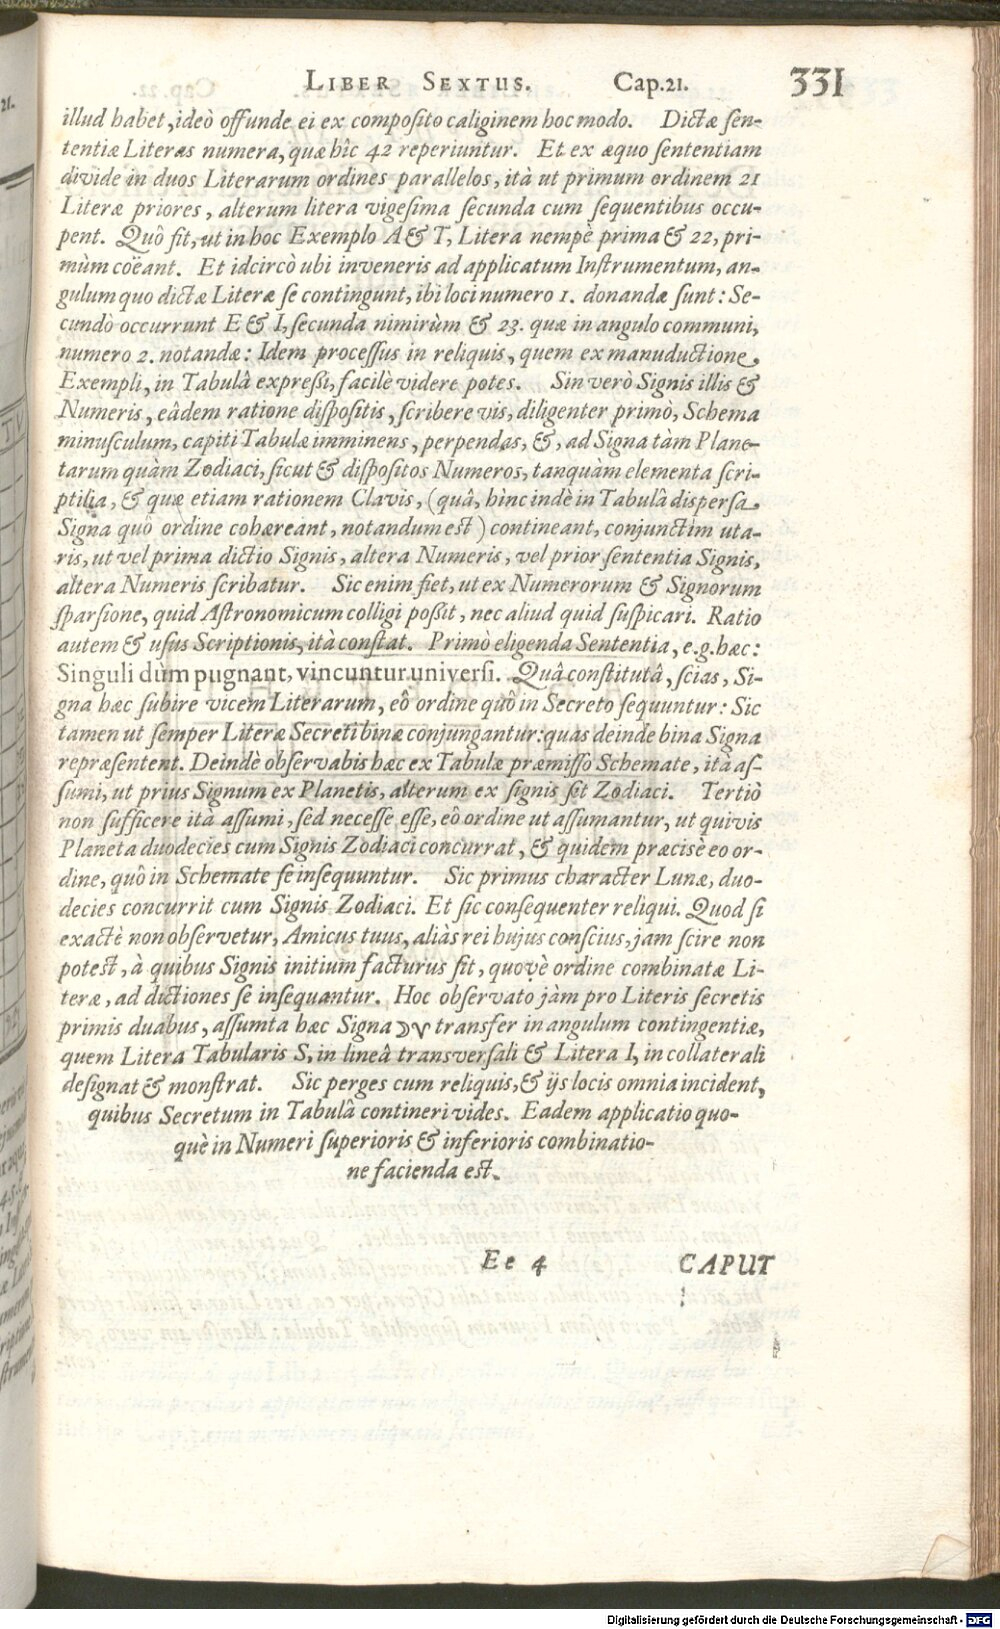 LIBER SEXTUS. Cap.21. 331
illud habet, ideò offunde ei ex composito caliginem hoc modo. Dictæ sen-
tentiæ Literas numera, quæ hîc 42 reperiuntur. Et ex æquo sententiam
divide in duos Literarum ordines parallelos, ità ut primum ordinem 21
Literæ priores, alterum litera vigesima secunda cum sequentibus occu-
pent. Quô fit, ut in hoc Exemplo A & T, Litera nempè prima & 22, pri-
mùm coëant. Et idcircò ubi inveneris ad applicatum Instrumentum, an-
gulum quo dictæ Literæ se contingunt, ibi loci numero 1. donandæ sunt: Se-
cundò occurrunt E & I, secunda nimirùm & 23. quæ in angulo communi,
numero 2. notandæ: Idem processus in reliquis, quem ex manuductione
Exempli, in Tabulâ expressi, facilè videre potes. Sin verò Signis illis &
Numeris, eâdem ratione dispositis, scribere vis, diligenter primò, Schema
minusculum, capiti Tabulæ imminens, perpendas, &, ad Signa tàm Plane-
tarum quàm Zodiaci, sicut & dispositos Numeros, tanquàm elementa scri-
ptilia, & quæ etiam rationem Clavis, (quâ, hinc indè in Tabulâ dispersa
Signa quô ordine cohæreant, notandum est) contineant, conjunctim uta-
ris, ut vel prima dictio Signis, altera Numeris, vel prior sententia Signis,
altera Numeris scribatur. Sic enim fiet, ut ex Numerorum & Signorum
sparsione, quid Astronomicum colligi possit, nec aliud quid suspicari. Ratio
autem & usus Scriptionis, ità constat. Primò eligenda Sententia, e.g. hæc:
Singuli dùm pugnant, vincuntur universi. Quâ constitutâ, scias, Si-
gna hæc subire vicem Literarum, eô ordine quô in Secreto sequuntur: Sic
tamen ut semper Literæ Secreti binæ conjungantur: quas deinde bina Signa
repræsentent. Deindè observabis hæc ex Tabulæ præmisso Schemate, ità as-
sumi, ut prius Signum ex Planetis, alterum ex signis sit Zodiaci. Tertiò
non sufficere ità assumi, sed necesse esse, eô ordine ut assumantur, ut quivis
Planeta duodecies cum Signis Zodiaci concurrat, & quidem præcisè eo or-
dine, quô in Schemate se insequuntur. Sic primus character Lunæ, duo-
decies concurrit cum Signis Zodiaci. Et sic consequenter reliqui. Quod si
exactè non observetur, Amicus tuus, aliàs rei hujus conscius, jam scire non
potest, à quibus Signis initium facturus sit, quovè ordine combinatæ Li-
teræ, ad dictiones se insequantur. Hoc observato jàm pro Literis secretis
primis duabus, assumta hæc Signa ☽♈ transfer in angulum contingentiæ,
quem Litera Tabularis S, in lineâ transversali & Litera I, in collaterali
designat & monstrat. Sic perges cum reliquis, & ijs locis omnia incident,
quibus Secretum in Tabulâ contineri vides. Eadem applicatio quo-
què in Numeri superioris & inferioris combinatio-
ne facienda est.
Ee 4 CAPUT
Digitalisierung gefördert durch die Deutsche Forschungsgemeinschaft - DFG